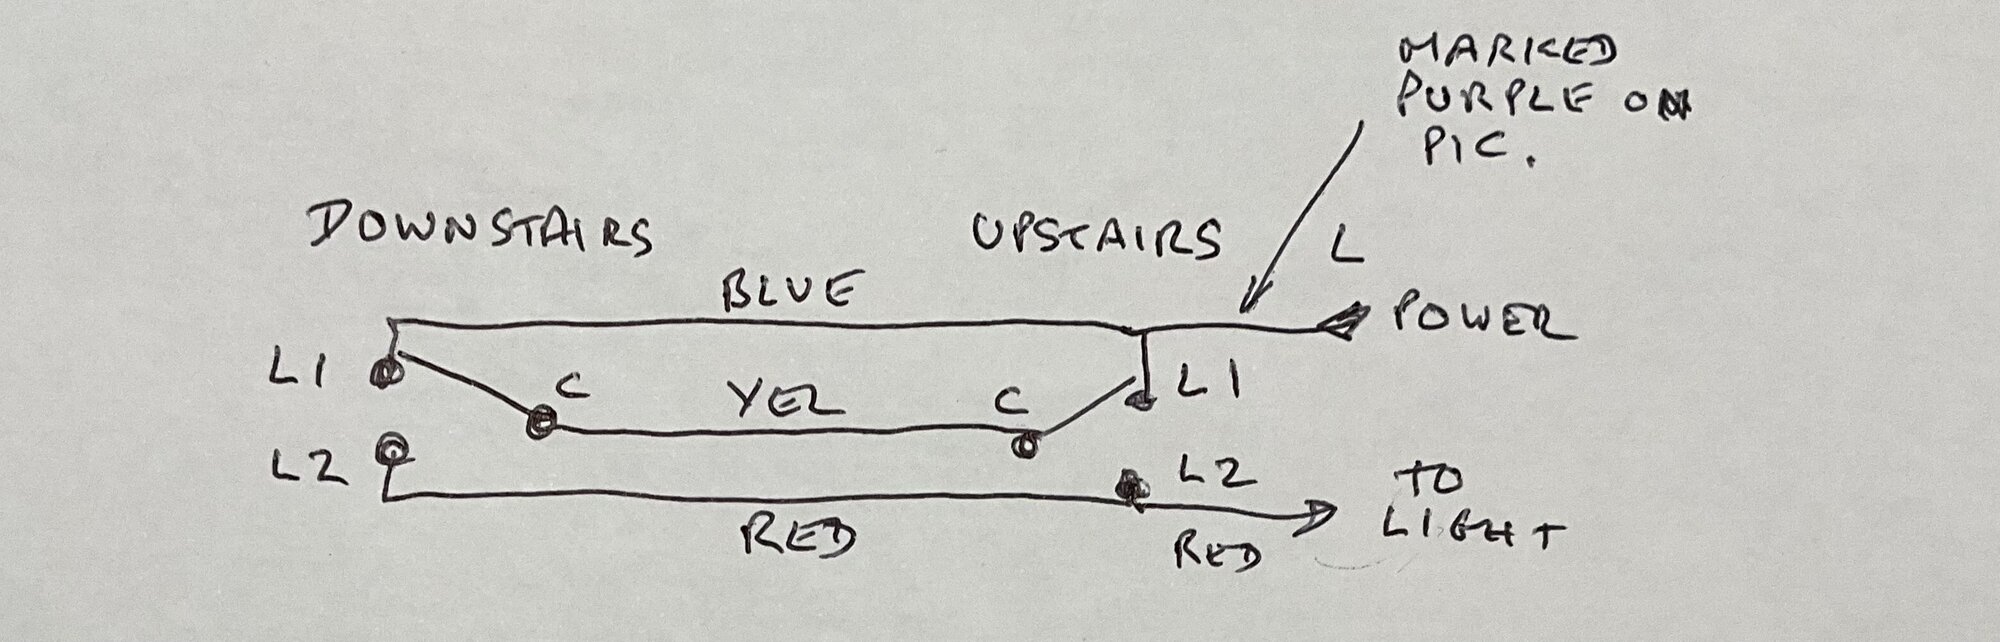 MARKED
PURPLE ON
PIC.
DOWNSTAIRS
UPSTAIRS
L
BLUE
POWER
L1
C
YEL
C
L1
L2
L2
TO
LIGHT
RED
RED